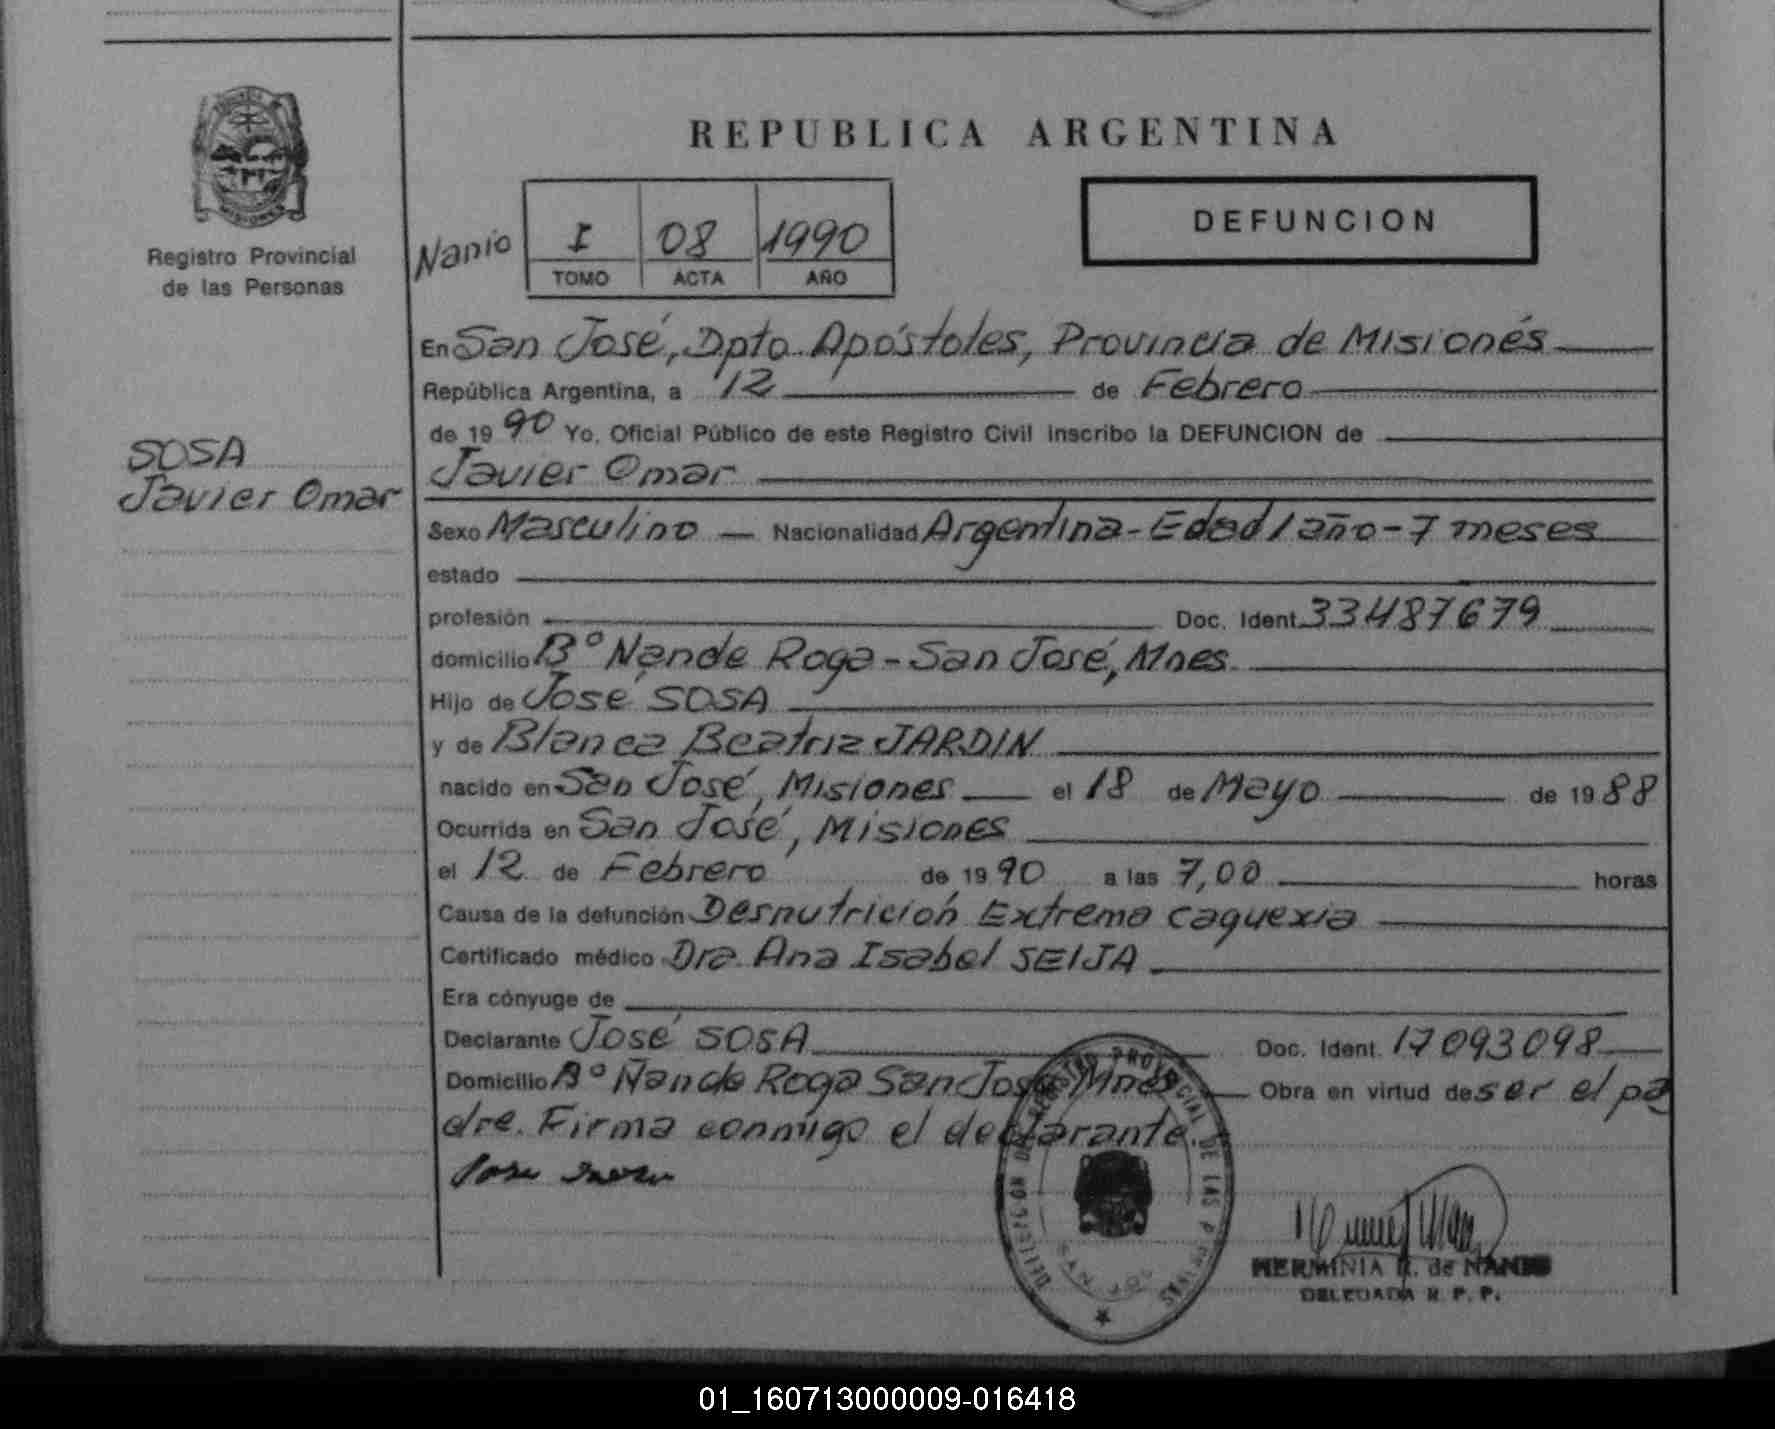 REPUBLICA ARGENTINA
Registro Provincial
de las Personas
Nanio
I 08 1990
TOMO ACTA AÑO
DEFUNCION
SOSA
Javier Omar
En San José, Dpto. Apóstoles, Provincia de Misiones
República Argentina, a 12 de Febrero
de 19 90 Yo, Oficial Público de este Registro Civil inscribo la DEFUNCION de
Javier Omar
Sexo Masculino — Nacionalidad Argentina - Edad 1 año - 7 meses
estado
profesión Doc. Ident. 33487679
domicilio Bº Ñande Roga - San José, Mnes.
Hijo de José SOSA
y de Blanca Beatriz JARDIN
nacido en San José, Misiones el 18 de Mayo de 19 88
Ocurrida en San José, Misiones
el 12 de Febrero de 19 90 a las 7,00 horas
Causa de la defunción Desnutrición Extrema caquexia
Certificado médico Dra. Ana Isabel SEIJA
Era cónyuge de
Declarante José SOSA Doc. Ident. 17093098
Domicilio Bº Ñande Roga San José Mnes Obra en virtud de ser el pa
dre. Firma conmigo el declarante.
DELEGACION DEL REGISTRO PROVINCIAL DE LAS PERSONAS
SAN JOSE
HERMINIA R. de NANIO
DELEGADA R. P. P.
01_160713000009-016418